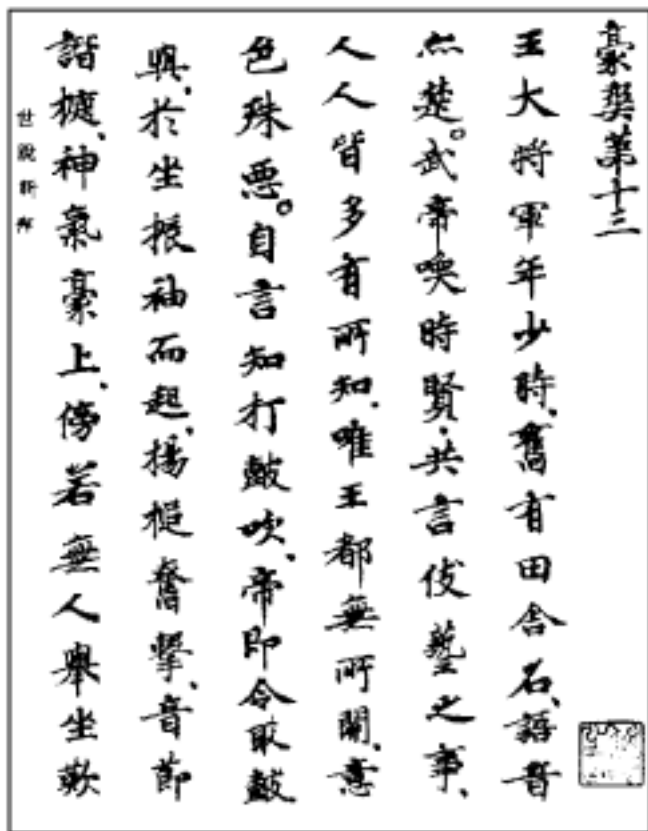 豪爽第十三
王大將軍年少時、舊有田舍名、語音
亦楚。武帝喚時賢、共言伎藝之事、
人人皆多有所知、唯王都無所關、意
色殊悪。自言知打皷吹、帝即令取皷
與、於坐振袖而起、揚槌奮擊、音節
諧捷、神氣豪上、傍若無人舉坐歎
世說新